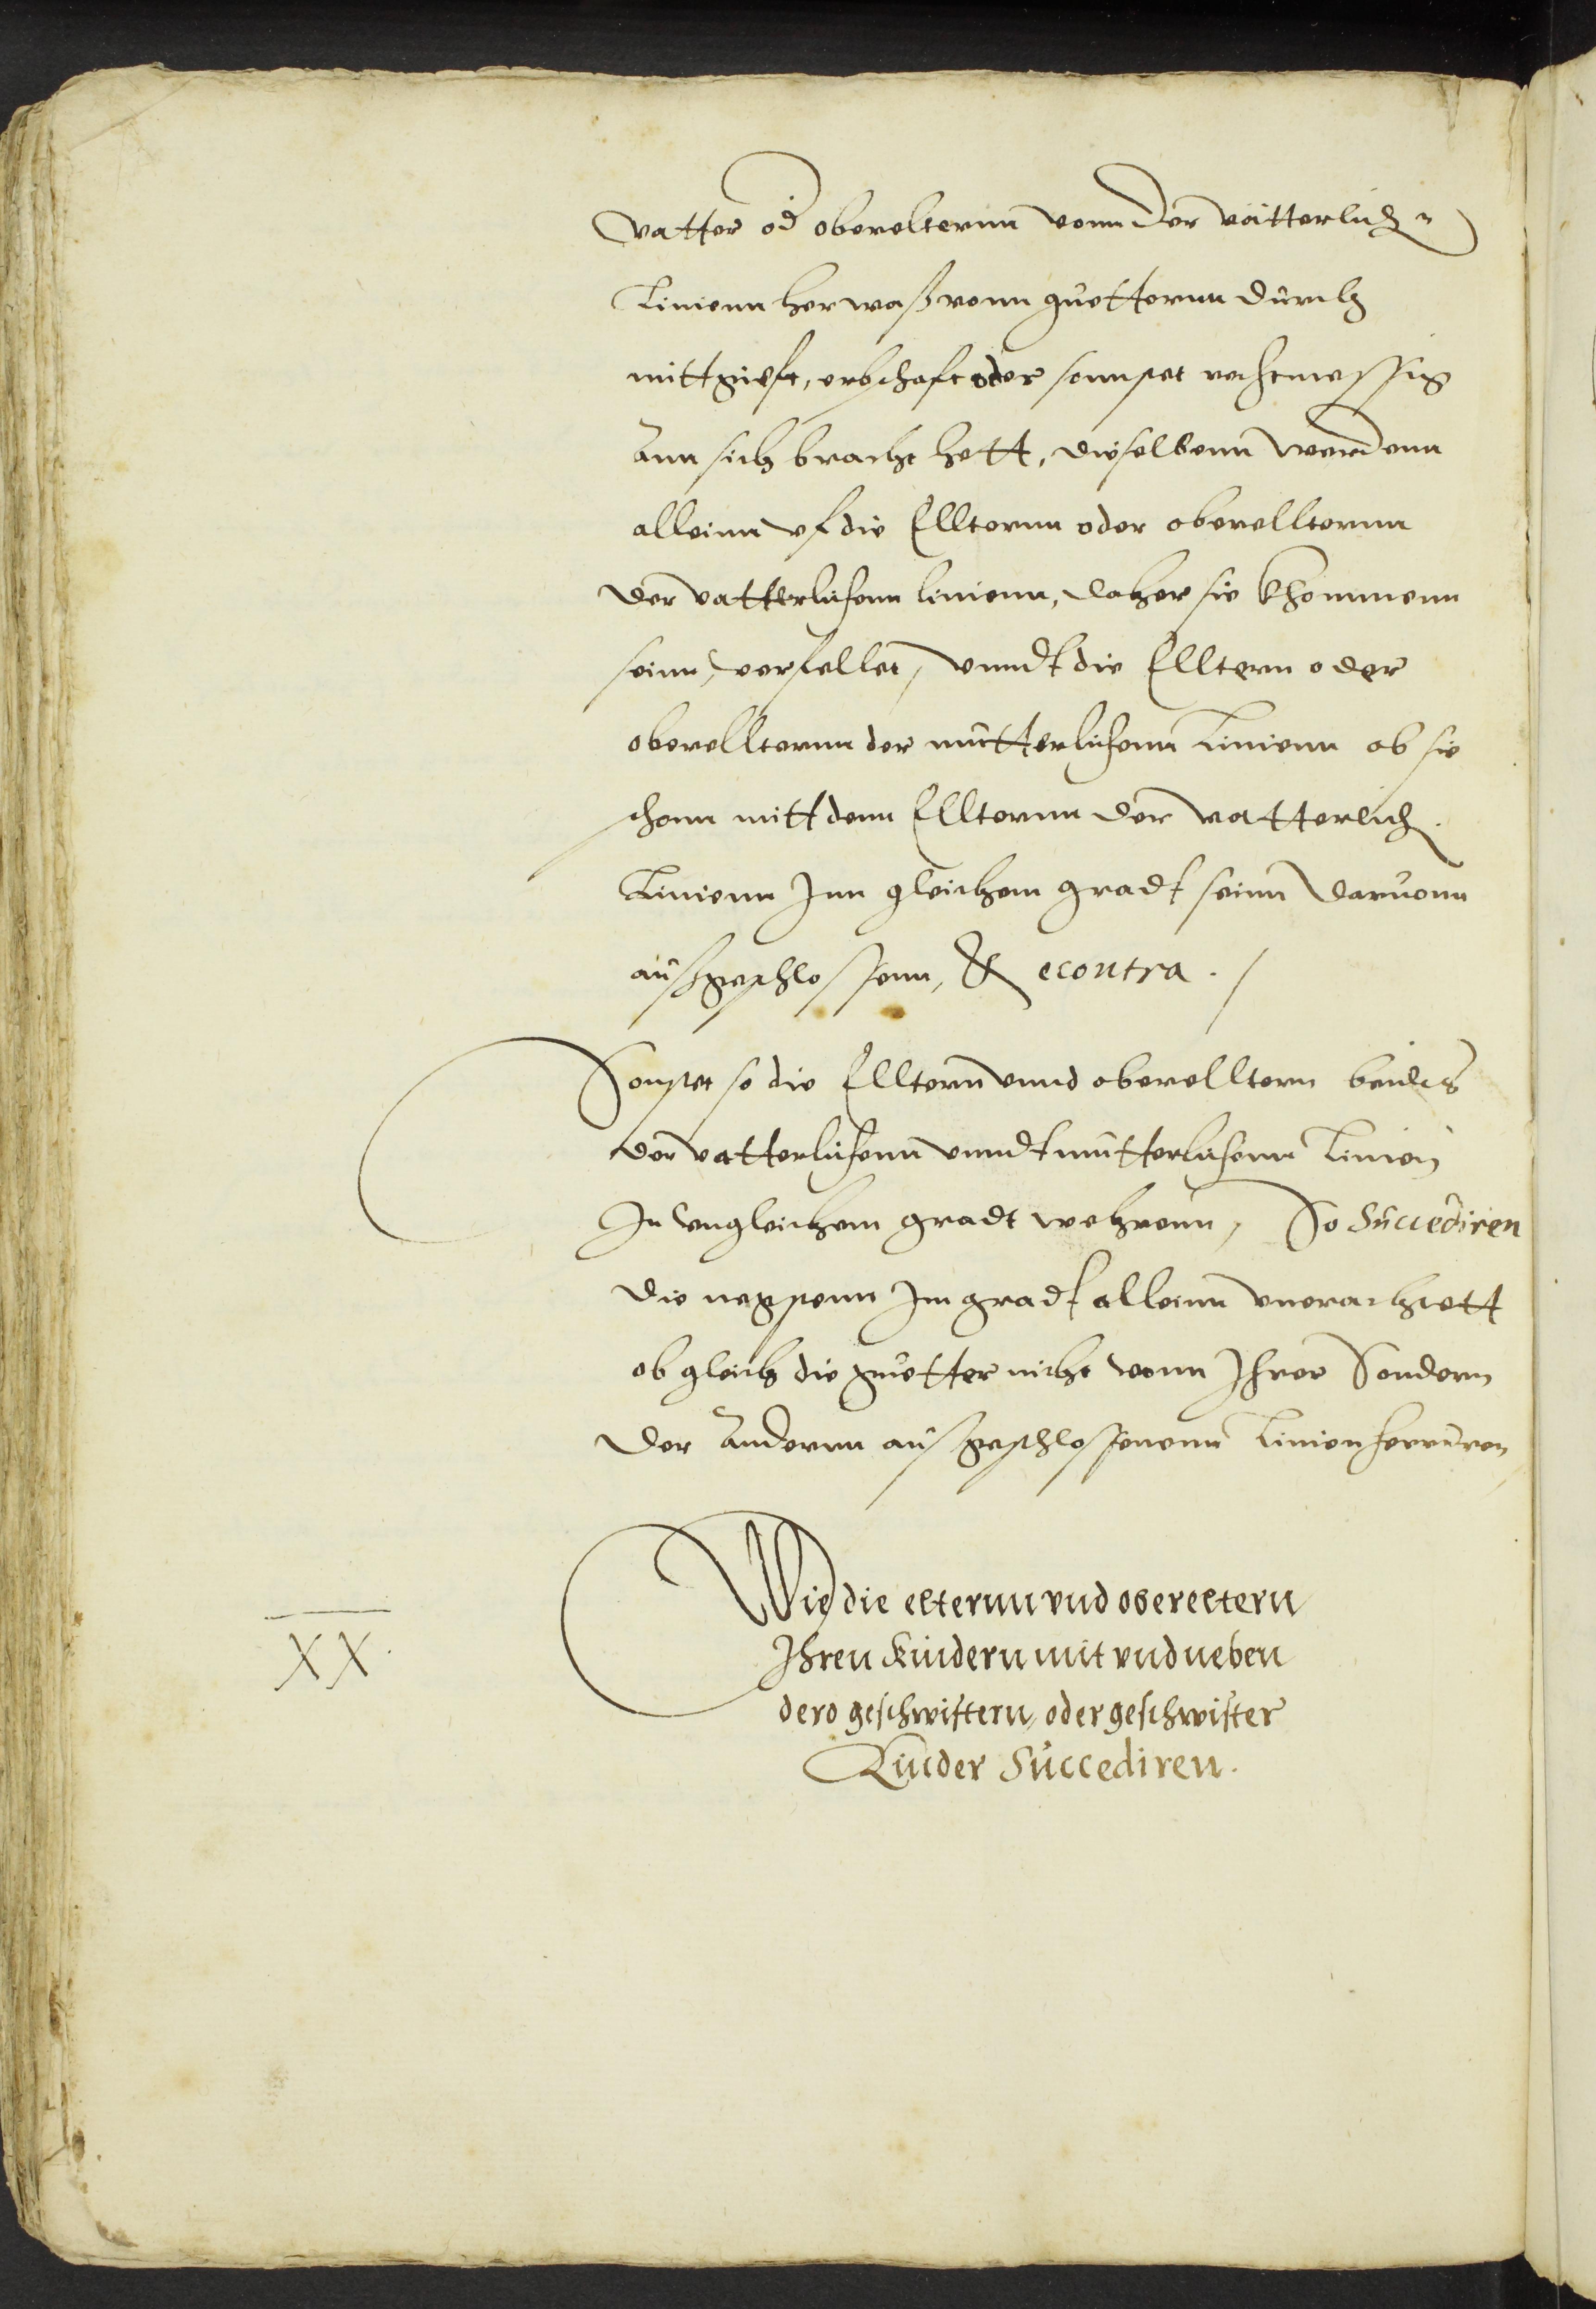 vatter od oberelternn vonn der vätterlich
Linienn her waß vonn guetternn durch
mittgieft, erbschaft oder sonnstet rechtmessig
Ann sich bracht hett, dieselbenn werdenn
alleinn vf die Elltternn oder oberelltternn
der vatterlichenn linienn, daher sie khommenn
seinn, verfellet, vnndt die Elltern oder
oberellternn der mutterlichenn Linienn ob sie
schonn mitt denn Ellternn der vatterlich.
Linienn Inn gleichem gradt seinn daruonn
außgeschlossenn, & econtra ./
Sonstet so die Ellternn vnnd oberelltern beides
der vatterlichenn vnndt mutterlichenn Linien
In vngleichem gradt wehrenn, So Succediren
die negstenn Im gradt alleinn vnerachtett
ob gleich die guetter nicht vonn Ihrer Sondern
der Anderrn außgeschlossenenn Linien herruren
Wie die elternn vnd obereltern
XX.
Ihren Kindern mit vnd neben
dero geschwistern, oder geschwister
Kinder Succediren.